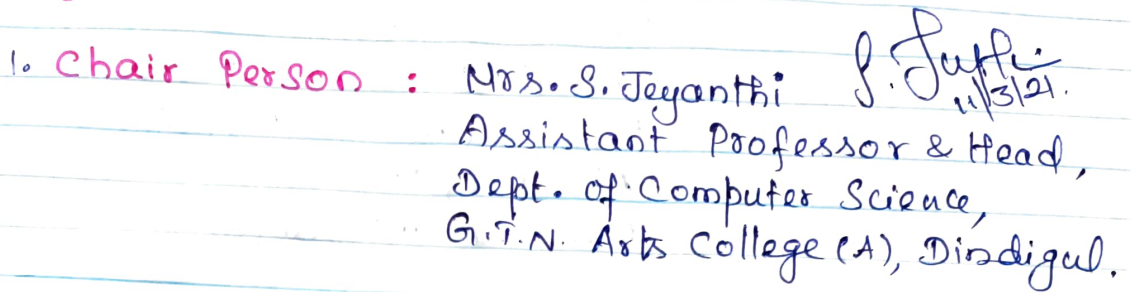 1. Chair Person : Mrs. S. Jeyanthi
11/3/21.
Assistant Professor & Head,
Dept. of Computer Science,
G.T.N. Arts College (A), Dindigul.